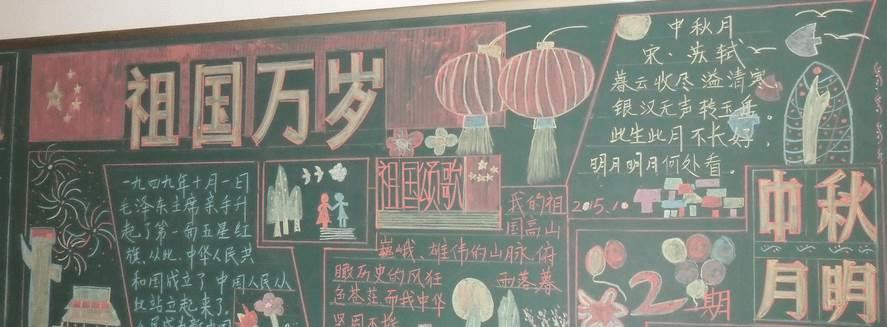 祖国万岁
一九四九年十月一日
毛泽东主席亲手升
起了第一面五星红
旗，从此，中华人民共
和国成立了 中国人民从
此站立起来了，
祖国颂歌
我的祖
国高山
巍峨，雄伟的山脉，俯
瞰历史的风狂 雨落暮
色苍茫而我中华
坚固不
中秋月
宋·苏轼
暮云收尽溢清寒，
银汉无声转玉盘。
此生此月不长好，
明月明月何处看。
2015.10
2期
中秋
月明